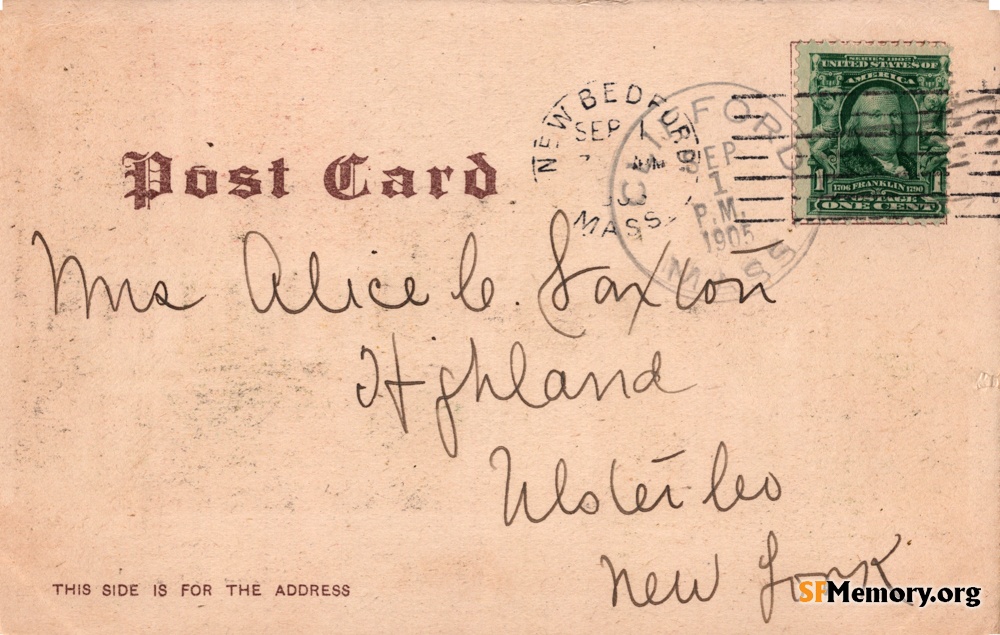 SERIES 1902
UNITED STATES OF
AMERICA
1 1706 FRANKLIN 1790 1
POSTAGE
ONE CENT
NEW BEDFORD
SEP 1
MASS.
SEP
1
P.M.
1905
MASS
Post Card
Mrs Alice C. Saxton
Highland
Ulster Co
New York
THIS SIDE IS FOR THE ADDRESS
SFMemory.org